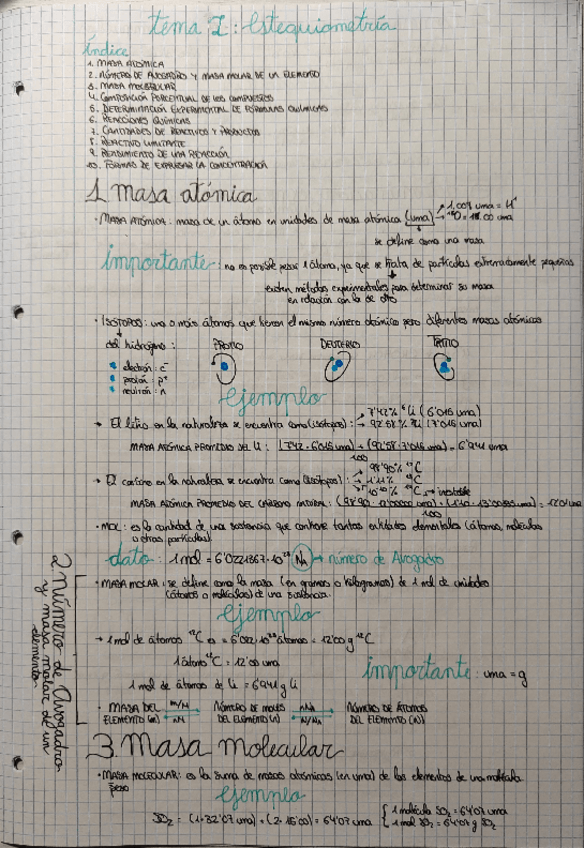 Tema 1: Estequiometría
Índice
1. MASA ATÓMICA
2. NÚMERO DE AVOGADRO Y MASA MOLAR DE UN ELEMENTO
3. MASA MOLECULAR
4. COMPOSICIÓN PORCENTUAL DE LOS COMPUESTOS
5. DETERMINACIÓN EXPERIMENTAL DE FÓRMULAS QUÍMICAS
6. REACCIONES QUÍMICAS
7. CANTIDADES DE REACTIVO Y PRODUCTOS
8. REACTIVO LIMITANTE
9. RENDIMIENTO DE UNA REACCIÓN
10. FORMAS DE EXPRESAR LA CONCENTRACIÓN
1. Masa atómica
· MASA ATÓMICA: masa de un átomo en unidades de masa atómica (uma)
se define como una masa
importante: no es posible pesar 1 átomo, ya que se trata de partículas extremadamente pequeñas
existen métodos experimentales para determinar su masa
en relación con la de otro
· ISÓTOPOS: uno o más átomos que tienen el mismo número atómico pero diferentes masas atómicas
del hidrógeno: PROTIO DEUTERIO TRITIO
electrón: e⁻
protón: p⁺
neutrón: n
ejemplo
→ El litio en la naturaleza se encuentra como (isótopos): → 7'42% ⁶Li (6'015 uma)
→ 92'58% ⁷Li (7'016 uma)
MASA ATÓMICA PROMEDIO DEL Li: (7'42 · 6'015 uma) + (92'58 · 7'016 uma) = 6'941 uma
100
→ El carbono en la naturaleza se encuentra como (isótopos): → 98'90% ¹²C
→ 1'11% ¹³C
→ inestable
MASA ATÓMICA PROMEDIO DEL CARBONO NATURAL:
100
· MOL: es la cantidad de una sustancia que contiene tantas entidades elementales (átomos, moléculas
u otras partículas)
dato: 1 mol = 6'0221367·10²³ (NA) → número de Avogadro
2. Número de Avogadro y masa molar de un elemento
· MASA MOLAR: se define como la masa (en gramos o kilogramos) de 1 mol de unidades
(átomos o moléculas) de una sustancia.
ejemplo
→ 1 mol de átomos ¹²C = 6'022·10²³ átomos = 12'00 g ¹²C
1 átomo ¹²C = 12'00 uma
importante: uma = g
1 mol de átomos de Li = 6'941 g Li
· MASA DEL ELEMENTO (m) m/M nM NÚMERO DE MOLES DEL ELEMENTO (n) nNA N/NA NÚMERO DE ÁTOMOS DEL ELEMENTO (N)
3. Masa molecular
· MASA MOLECULAR: es la suma de masas atómicas (en uma) de los elementos de una molécula
peso
ejemplo
SO₂ = (1·32'07 uma) + (2·16'00) = 64'07 uma { 1 molécula SO₂ = 64'07 uma
1 mol SO₂ = 64'07 g SO₂